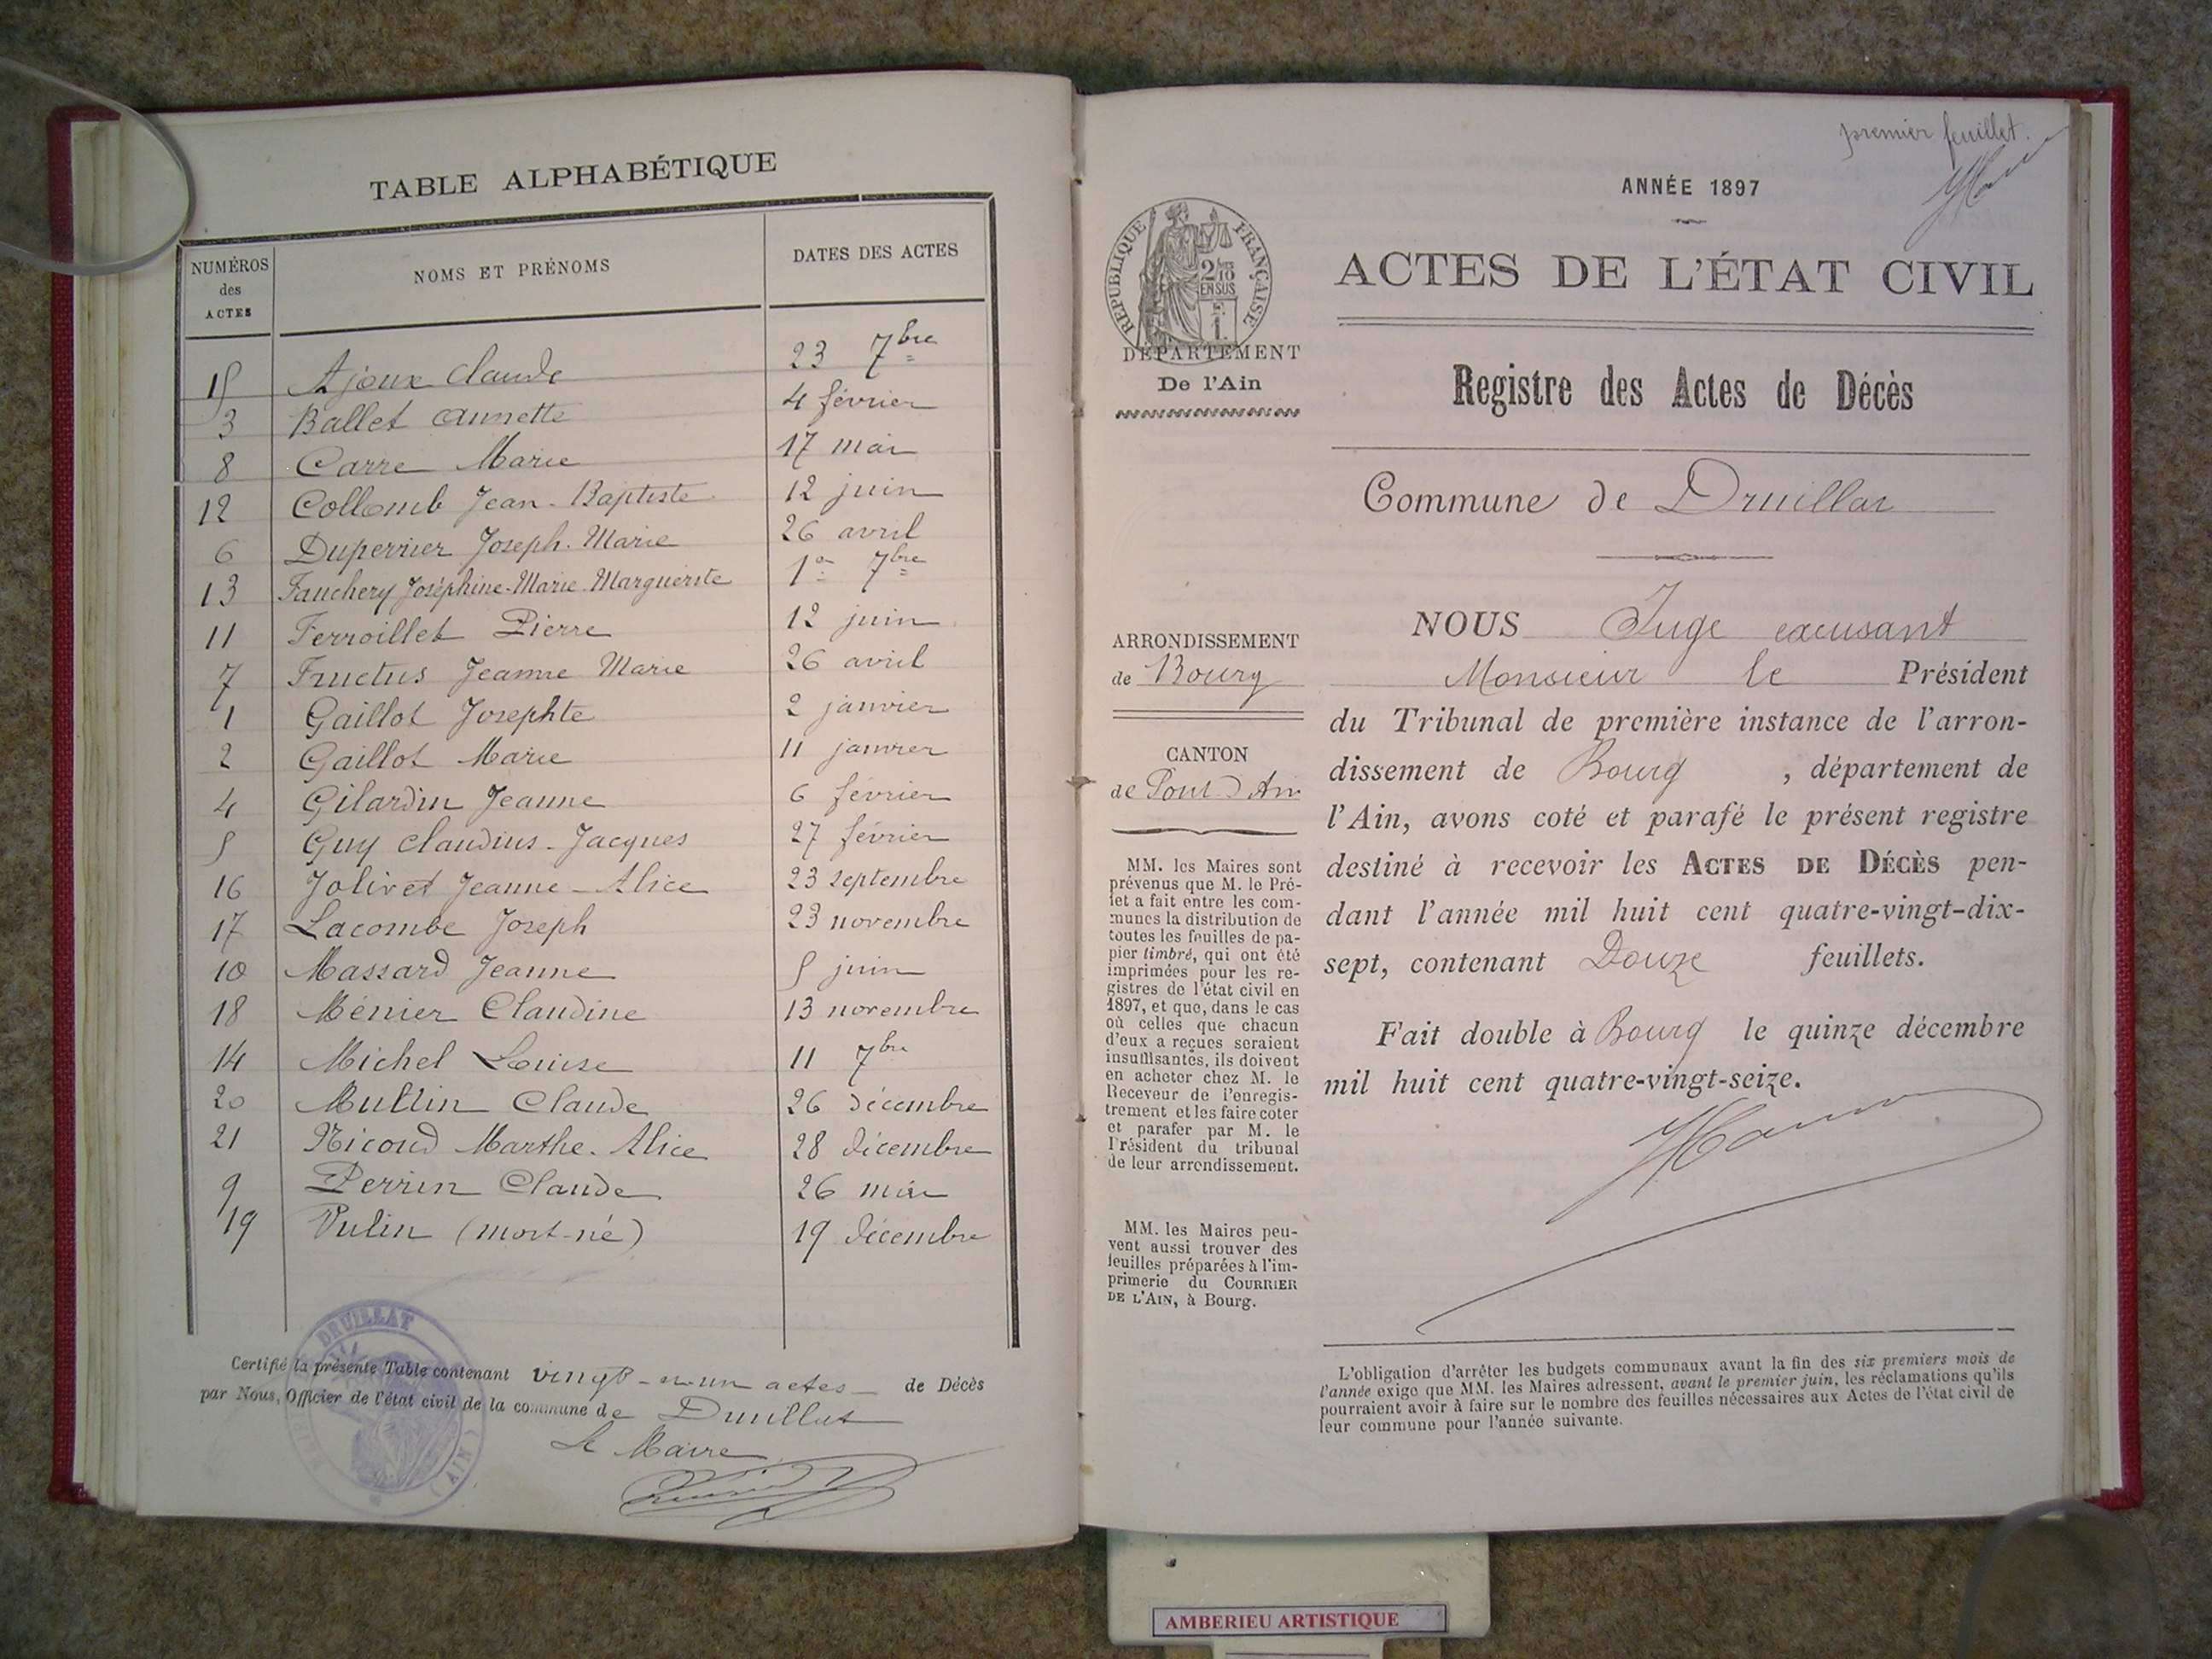 TABLE ALPHABÉTIQUE
NUMÉROS des ACTES
NOMS ET PRÉNOMS
DATES DES ACTES
15 Ajoux Claude 23 7bre
3 Ballet Annette 4 février
8 Carre Marie 17 mai
12 Collomb Jean-Baptiste 12 juin
6 Duperrier Joseph-Marie 26 avril
13 Fauchery Joséphine-Marie-Marguerite 1er 7bre
11 Ferroillet Pierre 12 juin
7 Fructus Jeanne Marie 26 avril
1 Gaillot Josephte 2 janvier
2 Gaillot Marie 11 janvier
4 Gilardin Jeanne 6 février
5 Guy Claudius-Jacques 27 février
16 Jolivet Jeanne-Alice 23 septembre
17 Lacombe Joseph 23 novembre
10 Massard Jeanne 5 juin
18 Ménier Claudine 13 novembre
14 Michel Louise 11 7bre
20 Mullin Claude 26 décembre
21 Nicoud Marthe-Alice 28 décembre
9 Perrin Claude 26 mai
19 Vulin (mort-né) 19 décembre
Certifié la présente Table contenant vingt-et-un actes de Décès
par Nous, Officier de l'état civil de la commune de Druillat
Le Maire
DRUILLAT
(AIN)
premier feuillet.
ANNÉE 1897
RÉPUBLIQUE FRANÇAISE
2/10
EN SUS
ACTES DE L'ÉTAT CIVIL
DÉPARTEMENT
De l'Ain
Registre des Actes de Décès
Commune de Druillat
ARRONDISSEMENT
de Bourg
CANTON
de Pont d'Ain
MM. les Maires sont
prévenus que M. le Pré-
fet a fait entre les com-
munes la distribution de
toutes les feuilles de pa-
pier timbré, qui ont été
imprimées pour les re-
gistres de l'état civil en
1897, et que, dans le cas
où celles que chacun
d'eux a reçues seraient
insuffisantes, ils doivent
en acheter chez M. le
Receveur de l'enregis-
trement et les faire coter
et parafer par M. le
Président du tribunal
de leur arrondissement.
MM. les Maires peu-
vent aussi trouver des
feuilles préparées à l'im-
primerie du COURRIER
DE L'AIN, à Bourg.
NOUS Juge excusant
Monsieur le Président
du Tribunal de première instance de l'arron-
dissement de Bourg, département de
l'Ain, avons coté et parafé le présent registre
destiné à recevoir les ACTES DE DÉCÈS pen-
dant l'année mil huit cent quatre-vingt-dix-
sept, contenant Douze feuillets.
Fait double à Bourg le quinze décembre
mil huit cent quatre-vingt-seize.
L'obligation d'arrêter les budgets communaux avant la fin des six premiers mois de
l'année exige que MM. les Maires adressent, avant le premier juin, les réclamations qu'ils
pourraient avoir à faire sur le nombre des feuilles nécessaires aux Actes de l'état civil de
leur commune pour l'année suivante.
AMBERIEU ARTISTIQUE